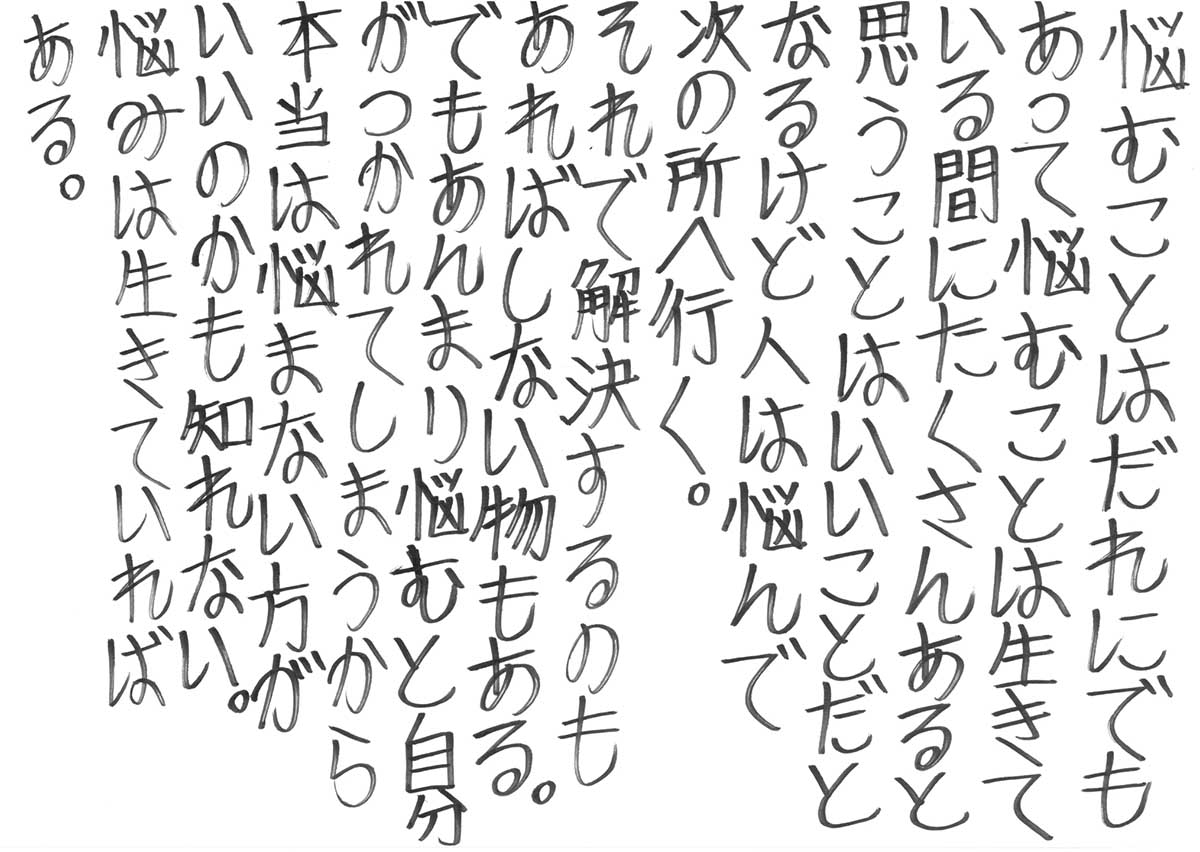 悩むことはだれにでも
あって悩むことは生きて
いる間にたくさんあると
思うことはいいことだと
なるけど人は悩んで
次の所へ行く。
それで解決するのも
あればしない物もある。
でもあんまり悩むと自分
がつかれてしまうから
本当は悩まない方が
いいのかも知れない。
悩みは生きていれば
ある。